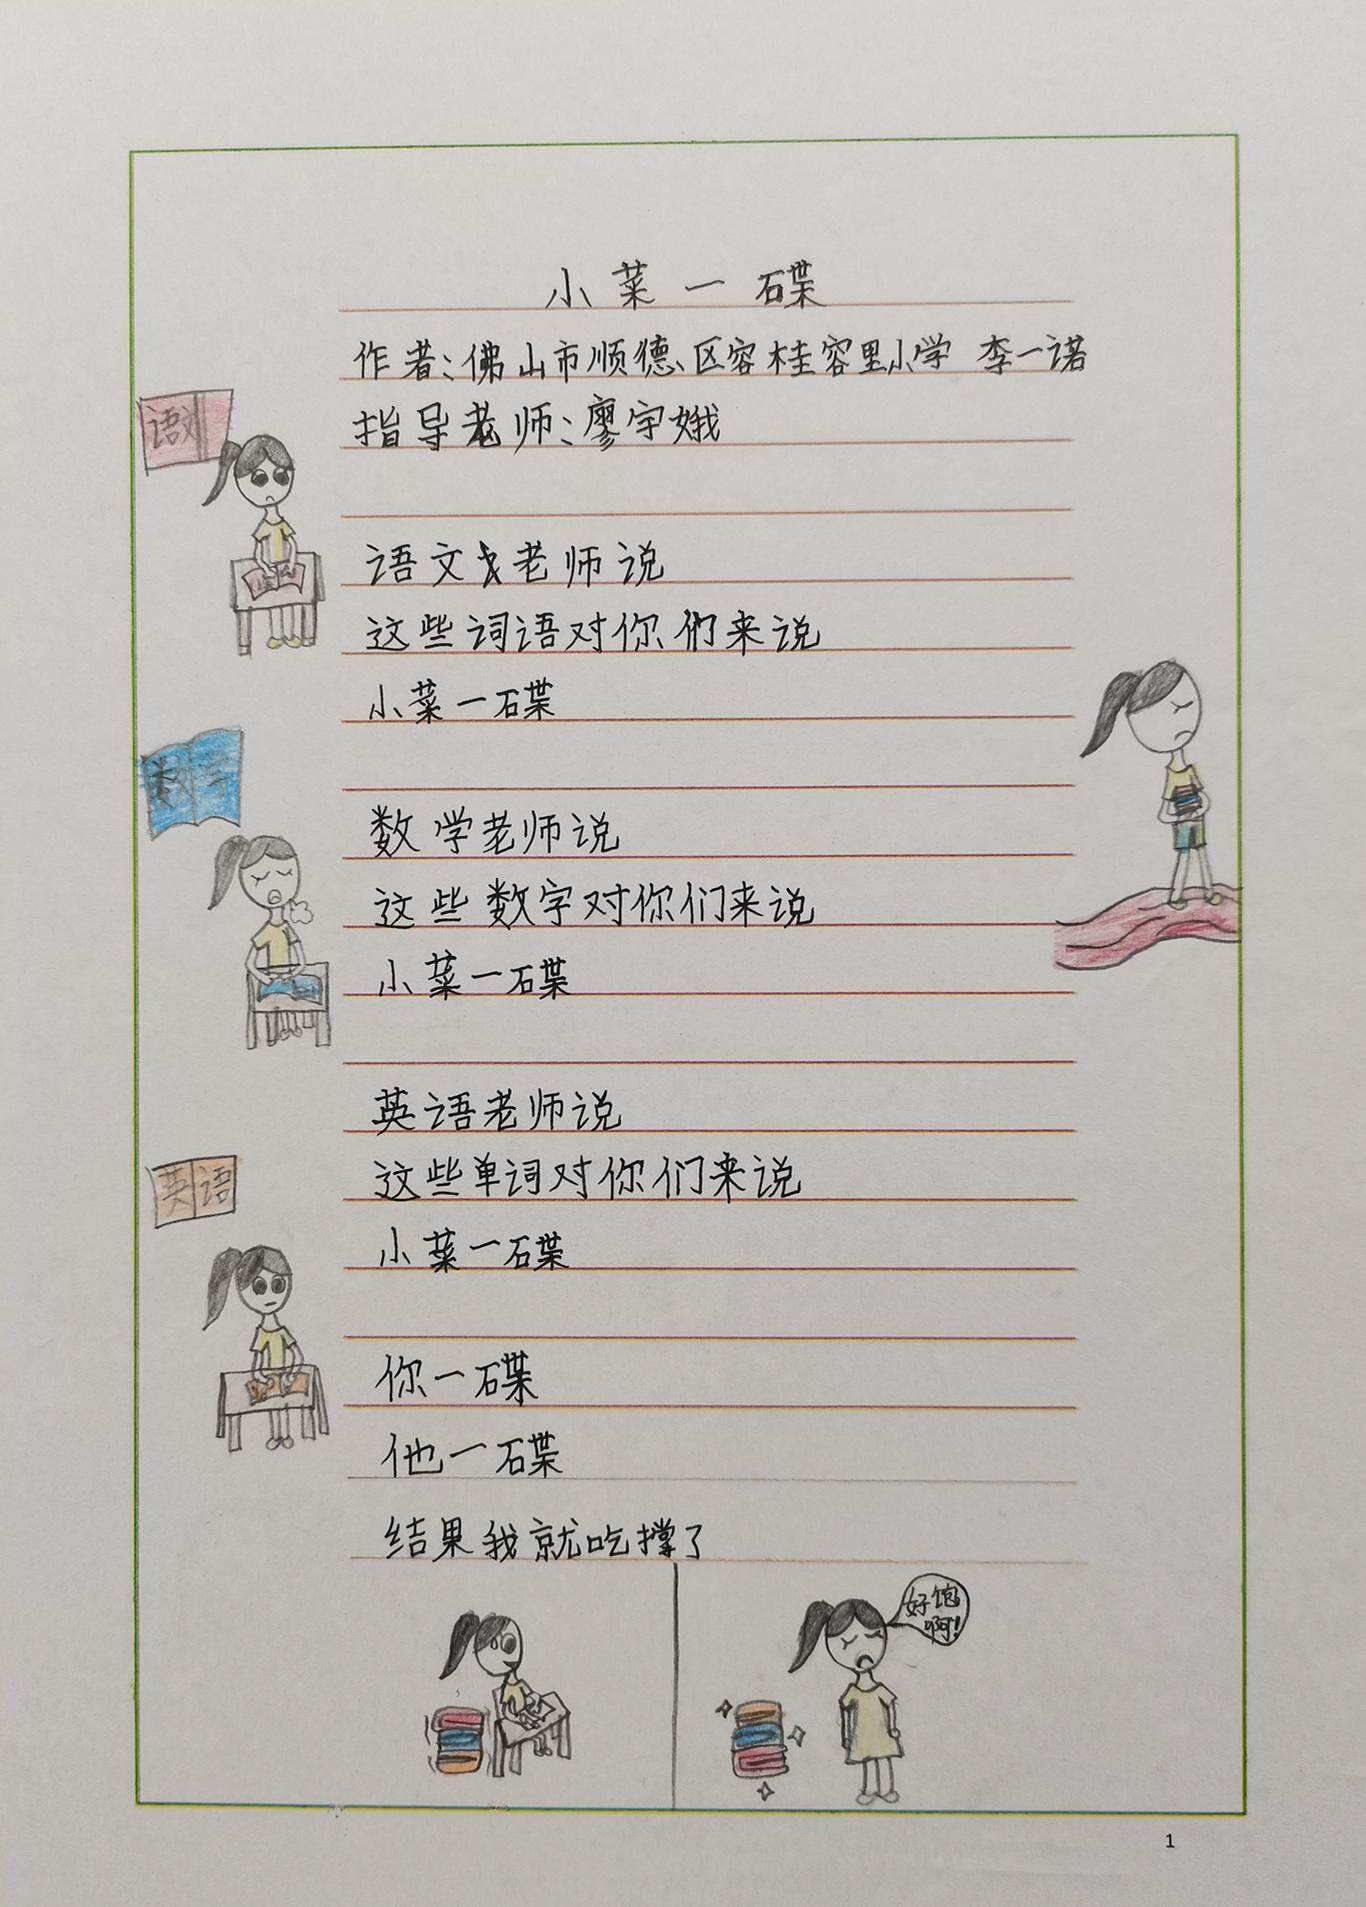 小菜一碟
作者:佛山市顺德区容桂容里小学 李一诺
指导老师:廖宇娥
语文
语文老师说
这些词语对你们来说
小菜一碟
数学
数学老师说
这些数字对你们来说
小菜一碟
英语老师说
英语
这些单词对你们来说
小菜一碟
你一碟
他一碟
结果我就吃撑了
好饱
啊!
1